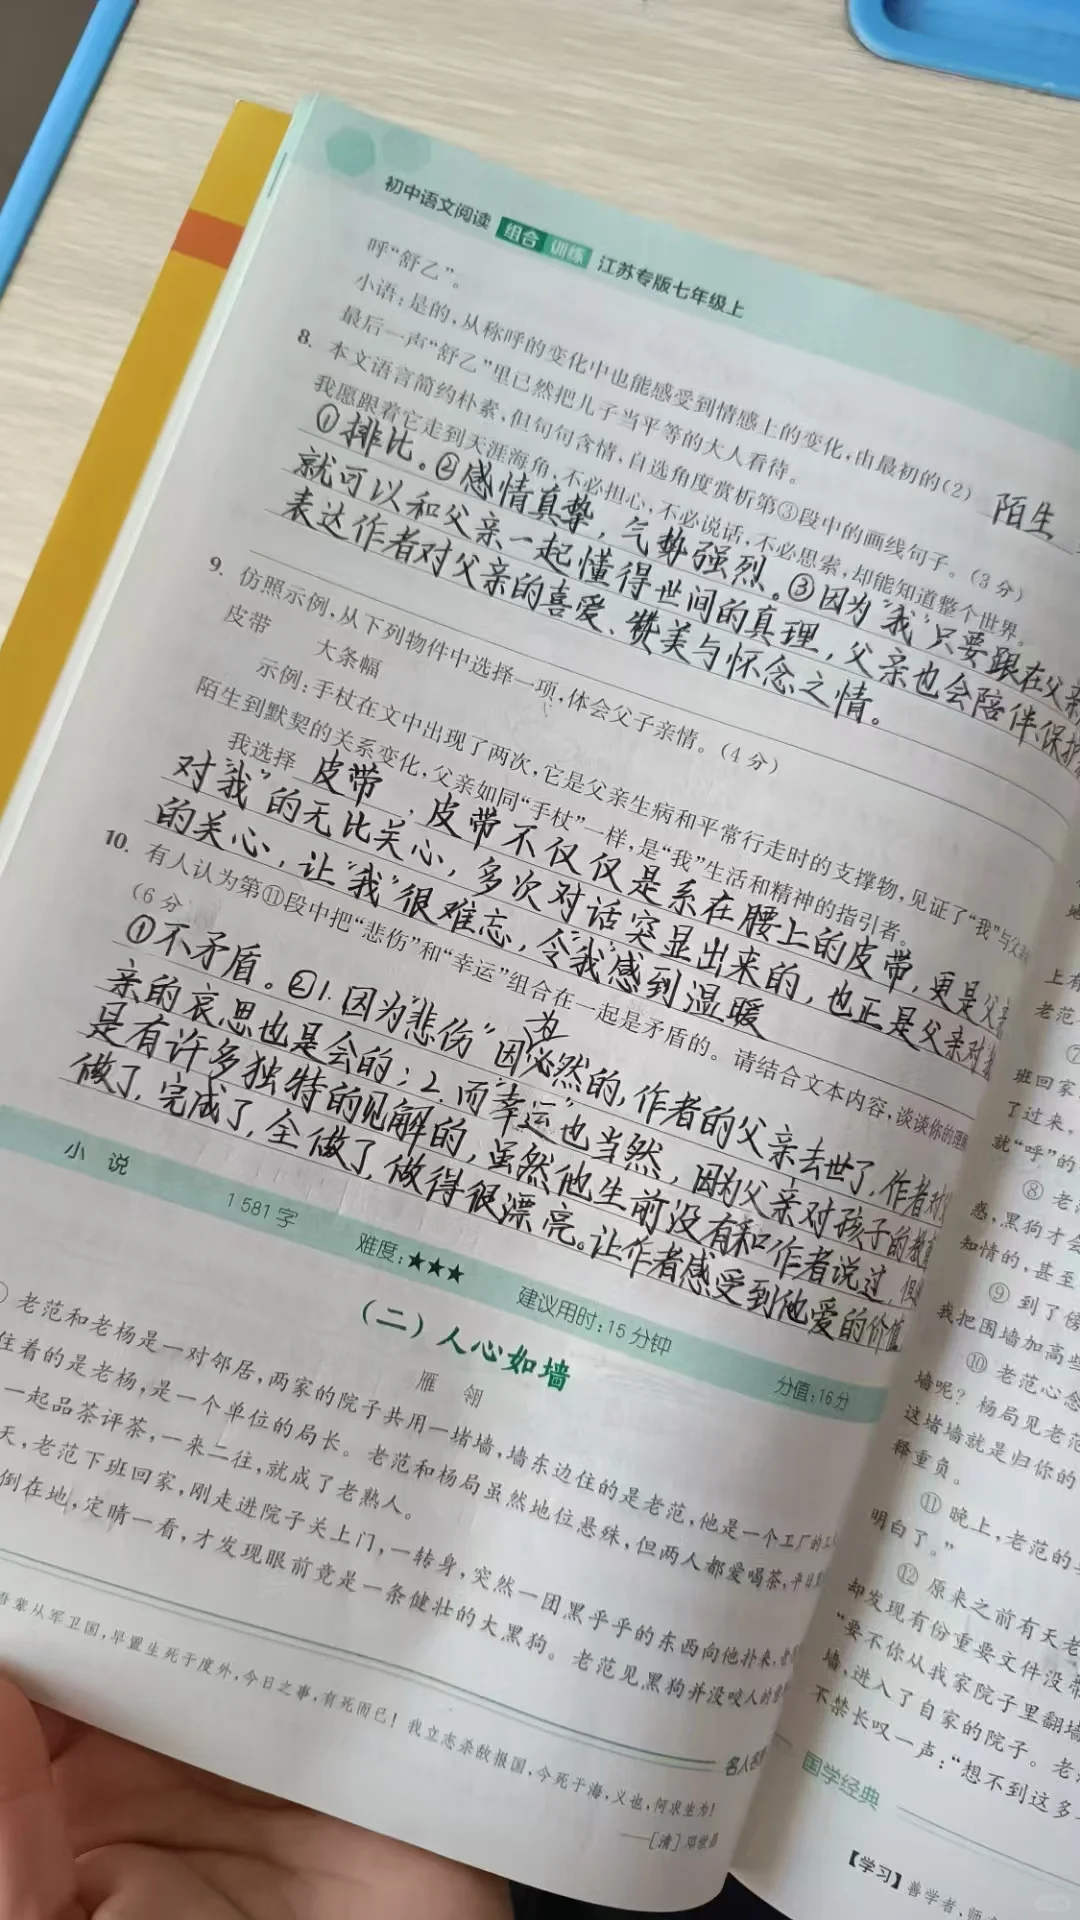 初中语文阅读 组合 训练 江苏专版七年级上
呼“舒乙”。
小语:是的,从称呼的变化中也能感受到情感上的变化,由最初的(2) 陌生
最后一声“舒乙”里已然把儿子当平等的大人看待。
8. 本文语言简约朴素,但句句含情,自选角度赏析第③段中的画线句子。(3分)
我愿跟着它走到天涯海角,不必担心,不必说话,不必思索,却能知道整个世界。
①排比。②感情真挚,气势强烈。③因为“我”只要跟在父亲
就可以和父亲一起懂得世间的真理,父亲也会陪伴、保护
表达作者对父亲的喜爱、赞美与怀念之情。
9. 仿照示例,从下列物件中选择一项,体会父子亲情。(4分)
皮带 大条幅
示例:手杖在文中出现了两次,它是父亲生病和平常行走时的支撑物,见证了“我”与父亲
陌生到默契的关系变化,父亲如同“手杖”一样,是“我”生活和精神的指引者。
我选择 皮带,皮带不仅仅是系在腰上的皮带,更是父亲
对“我”的无比关心,多次对话突显出来的,也正是父亲对
的关心,让“我”很难忘,令“我”感到温暖
10. 有人认为第⑪段中把“悲伤”和“幸运”组合在一起是矛盾的。请结合文本内容,谈谈你的理解
(6分
①不矛盾。②1.因为“悲伤”因为必然的,作者的父亲去世了,作者对
亲的哀思也是会的;2.而“幸运”也当然,因为父亲对孩子的教育
是有许多独特的见解的,虽然他生前没有和作者说过,但
做了,完成了,全做了,做得很漂亮。让作者感受到他爱的价值
小说 1581字 难度:★★★ 建议用时:15分钟 分值:16分
(二)人心如墙
雁翎
老范和老杨是一对邻居,两家的院子共用一堵墙,墙东边住的是老范,他是一个工厂的工
住着的是老杨,是一个单位的局长。老范和杨局虽然地位悬殊,但两人都爱喝茶,平日
一起品茶评茶,一来二往,就成了老熟人。
天,老范下班回家,刚走进院子关上门,一转身,突然一团黑乎乎的东西向他扑来,
倒在地,定睛一看,才发现眼前竟是一条健壮的大黑狗。老范见黑狗并没咬人的
名人名
吾辈从军卫国,早置生死于度外,今日之事,有死而已!我立志杀敌报国,今死于海,义也,何求生为!
——[清]邓世昌
地
上有
老范
⑦
班回家
了过来,
就“呼”的
⑧ 老
惑,黑狗才会
知情的,甚至
⑨ 到了傍
我把围墙加高些
⑩ 老范心念
墙呢?杨局见老范
这堵墙就是归你的
释重负。
⑪ 晚上,老范的
明白了。”
⑫ 原来之前有天老
却发现有份重要文件没带
“要不你从我家院子里翻墙
墙,进入了自家的院子。老
不禁长叹一声:“想不到这多
国学经典
【学习】善学者,师